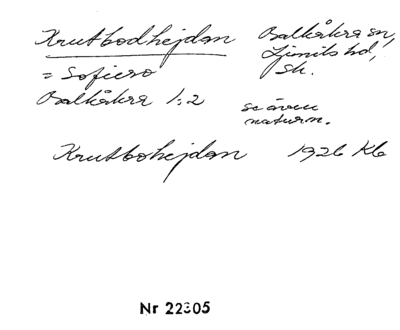 Krutbodhejdan Balkåkra sn,
Ljunits hd,
Sk.
= Sofiero
Balkåkra 1:2 se även
naturn.
Krutbohejdan 1926 Kb
Nr 22305